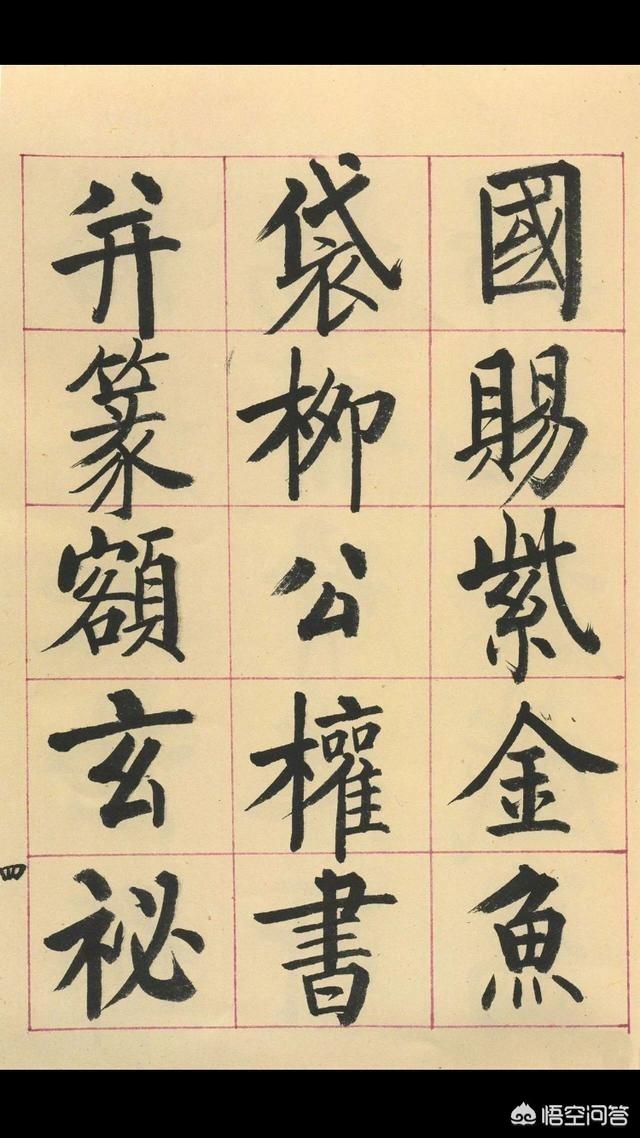 國賜紫金魚
袋柳公權書
并篆額玄祕
四
悟空问答